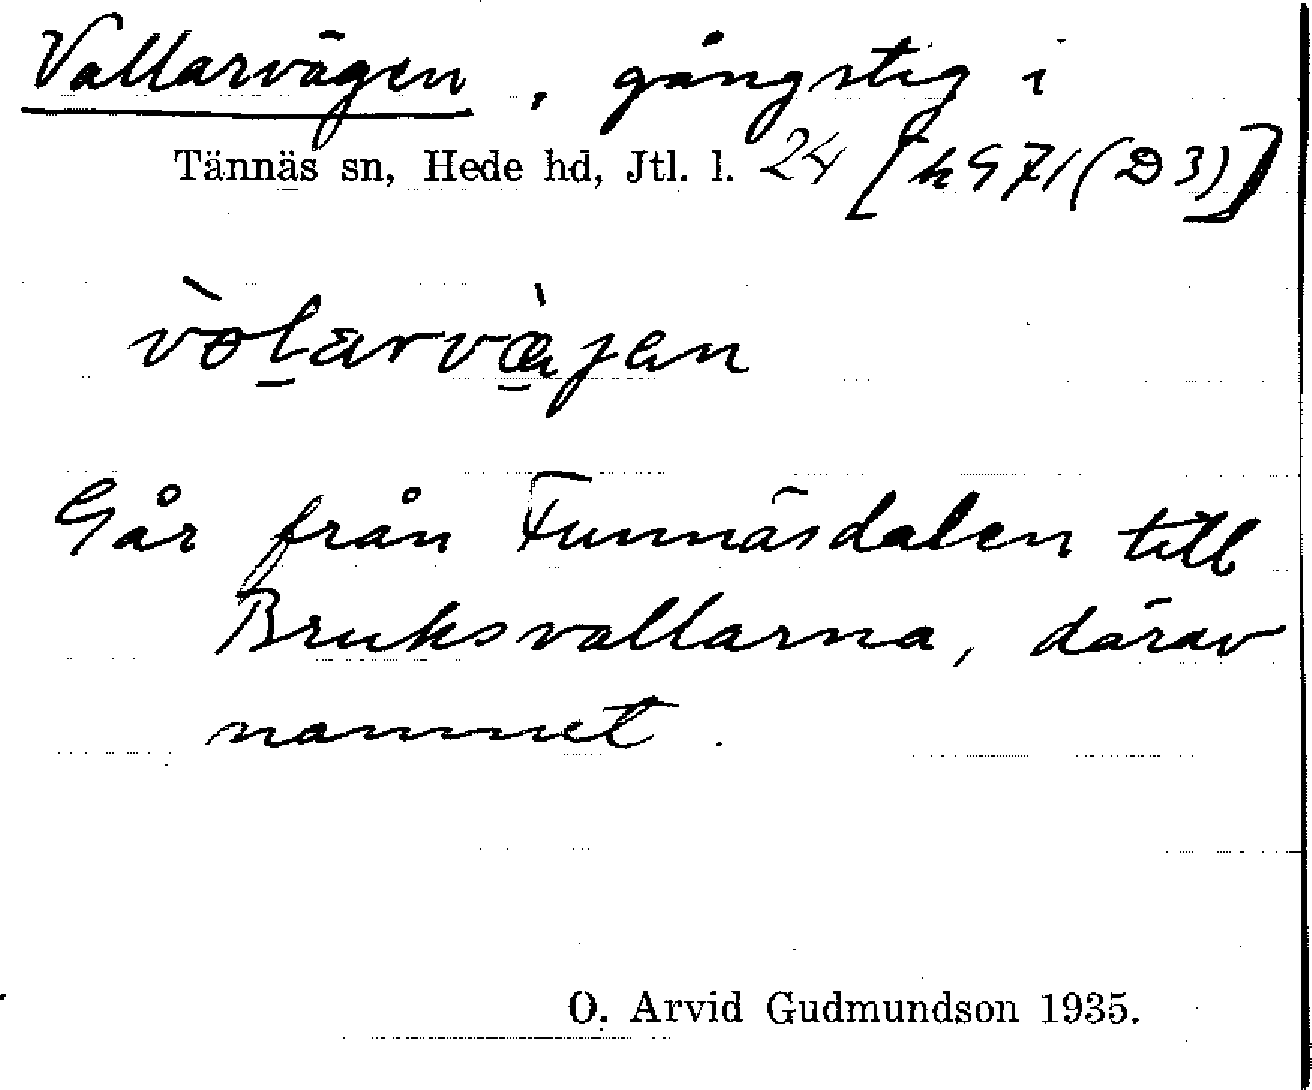 Vallarvägen, gångstig i
Tännäs sn, Hede hd, Jtl. l. 24 [k971(D3)]
vòlarvæ̀jen
Går från Funnäsdalen till
Bruksvallarna, därav
namnet.
O. Arvid Gudmundson 1935.